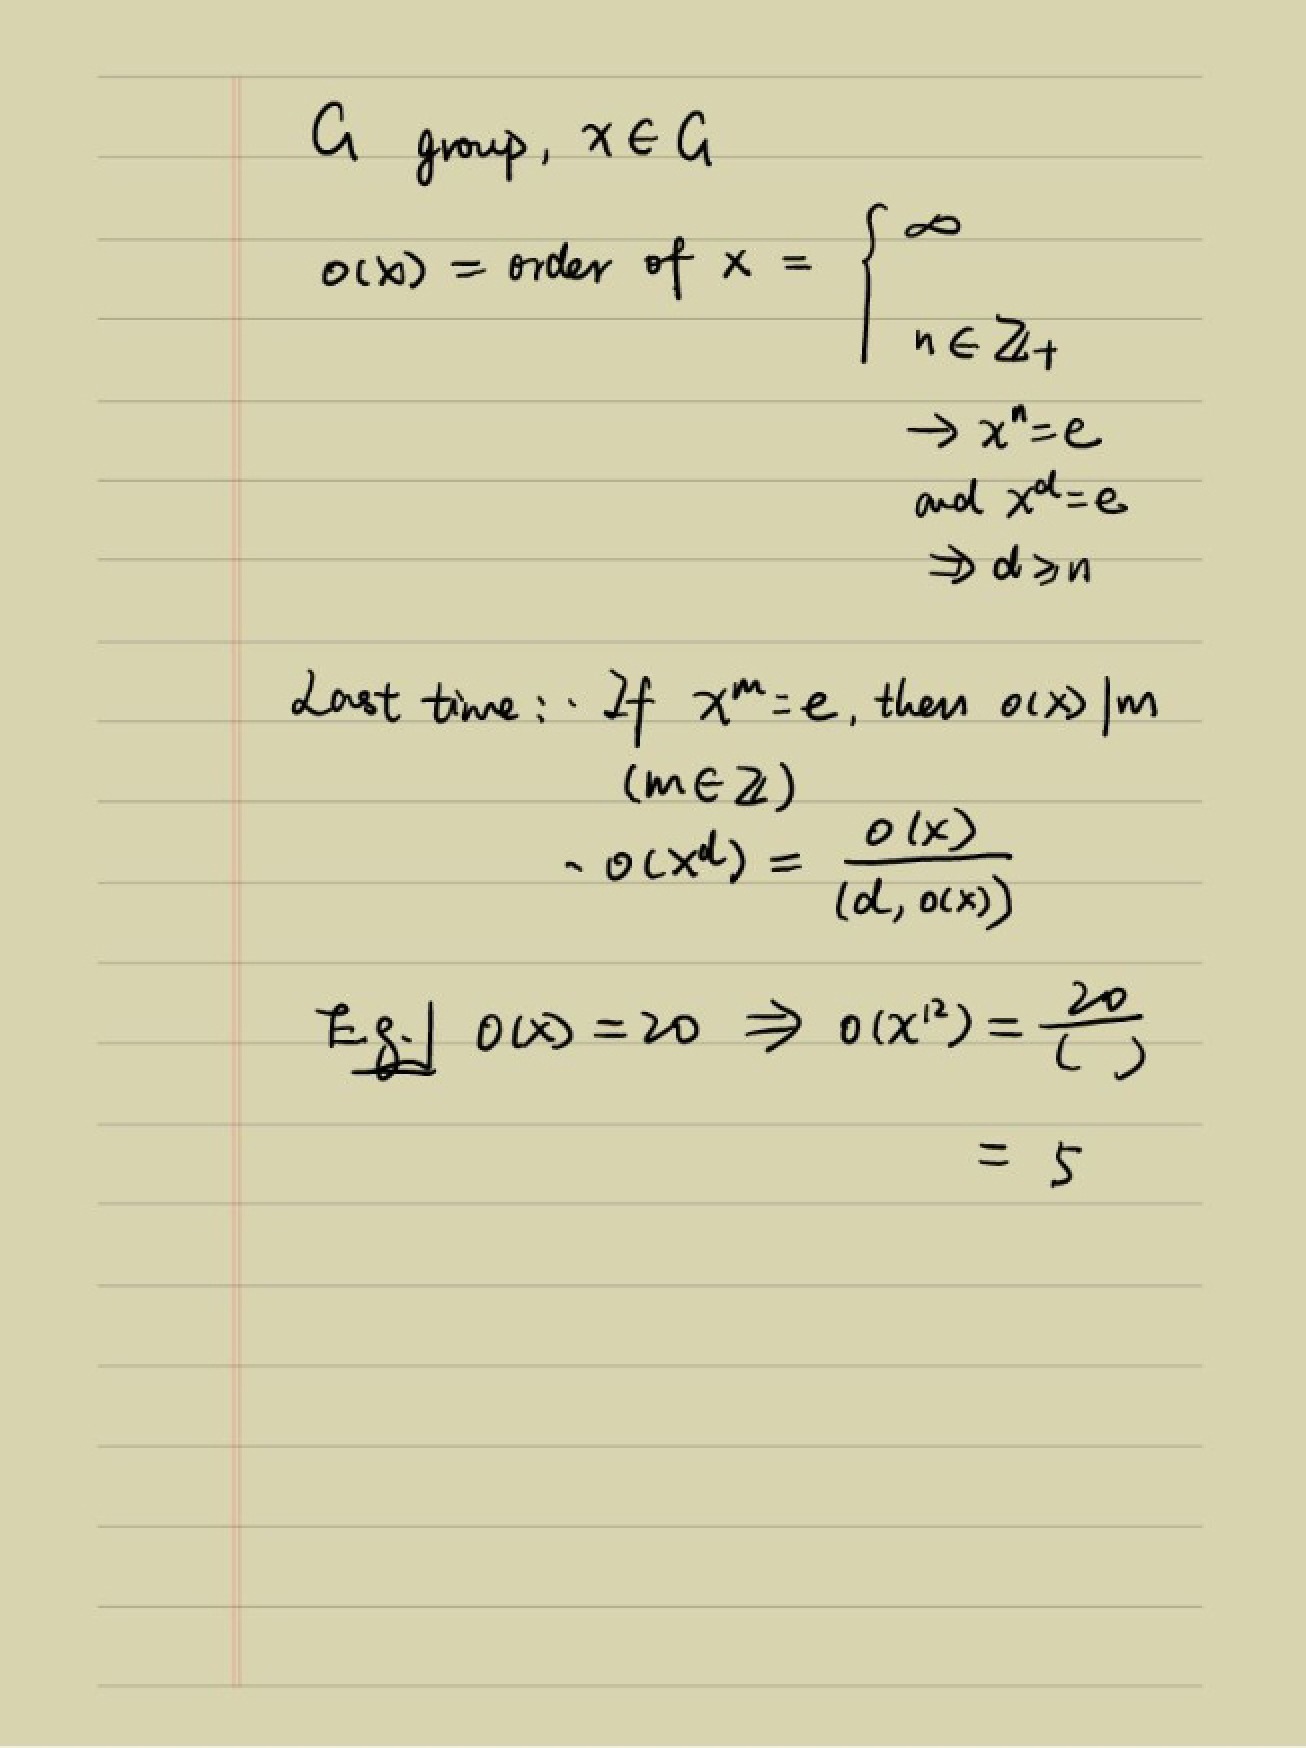 G group, x ∈ G
o(x) = order of x = { ∞
n ∈ ℤ+
→ xⁿ = e
and x^d = e
⇒ d ⩾ n
Last time: · If x^m = e, then o(x) | m
(m ∈ ℤ)
· o(x^d) = o(x) / (d, o(x))
E.g. o(x) = 20 ⇒ o(x¹²) = 20 / ( )
= 5